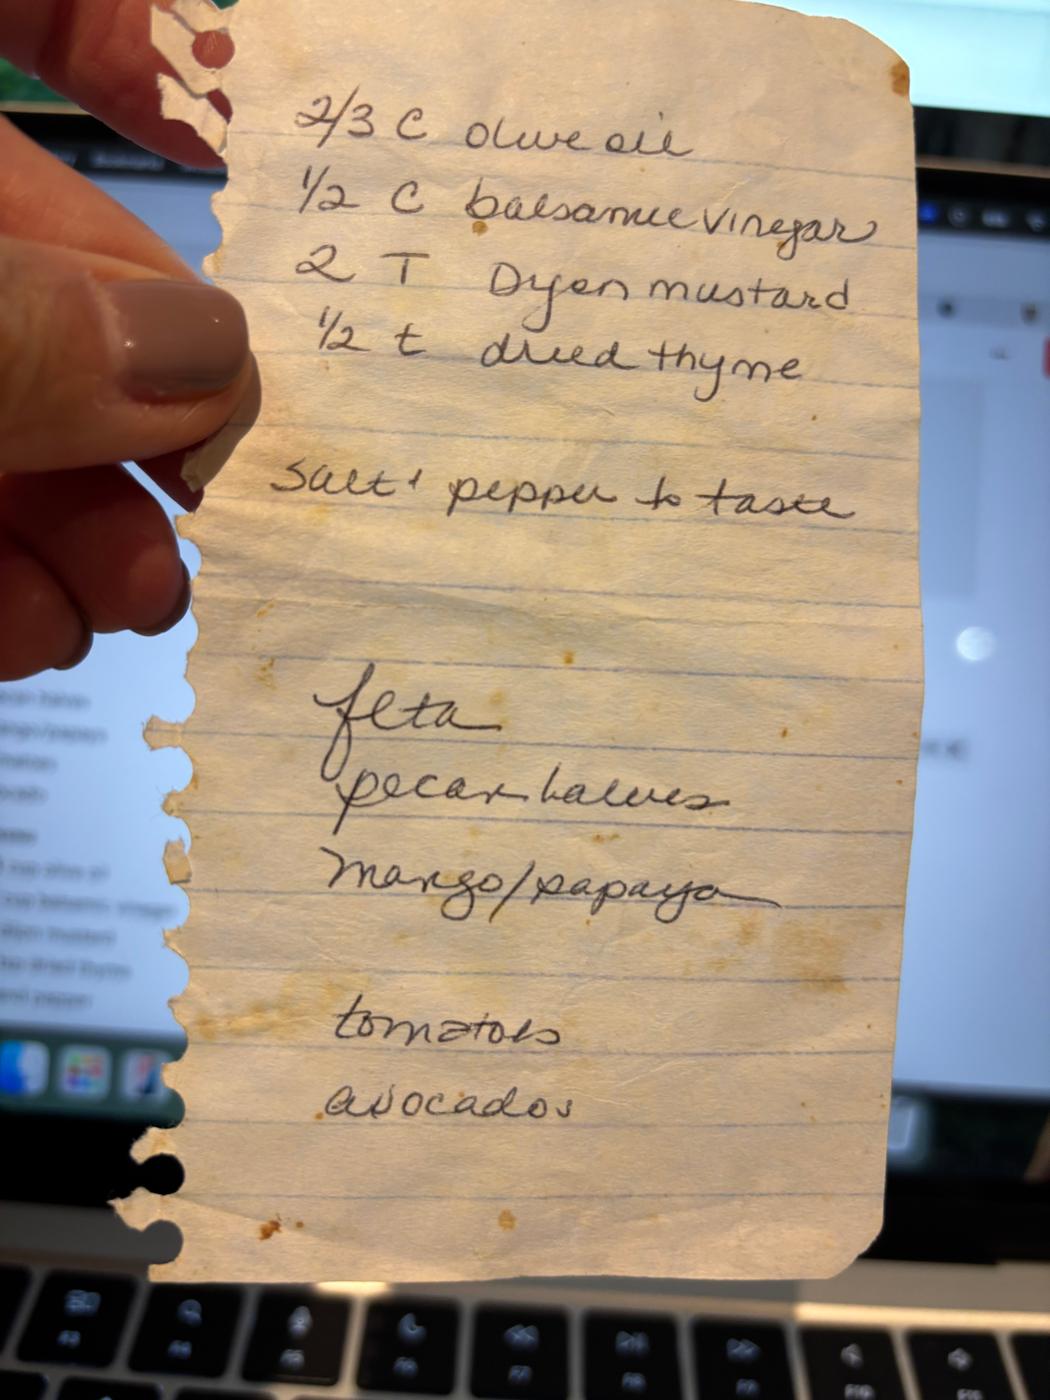 2/3 C olive oil
1/2 C balsamic vinegar
2 T Dijon mustard
1/2 t dried thyme
Salt & pepper to taste
feta
pecan halves
mango/papaya
tomatoes
avocados